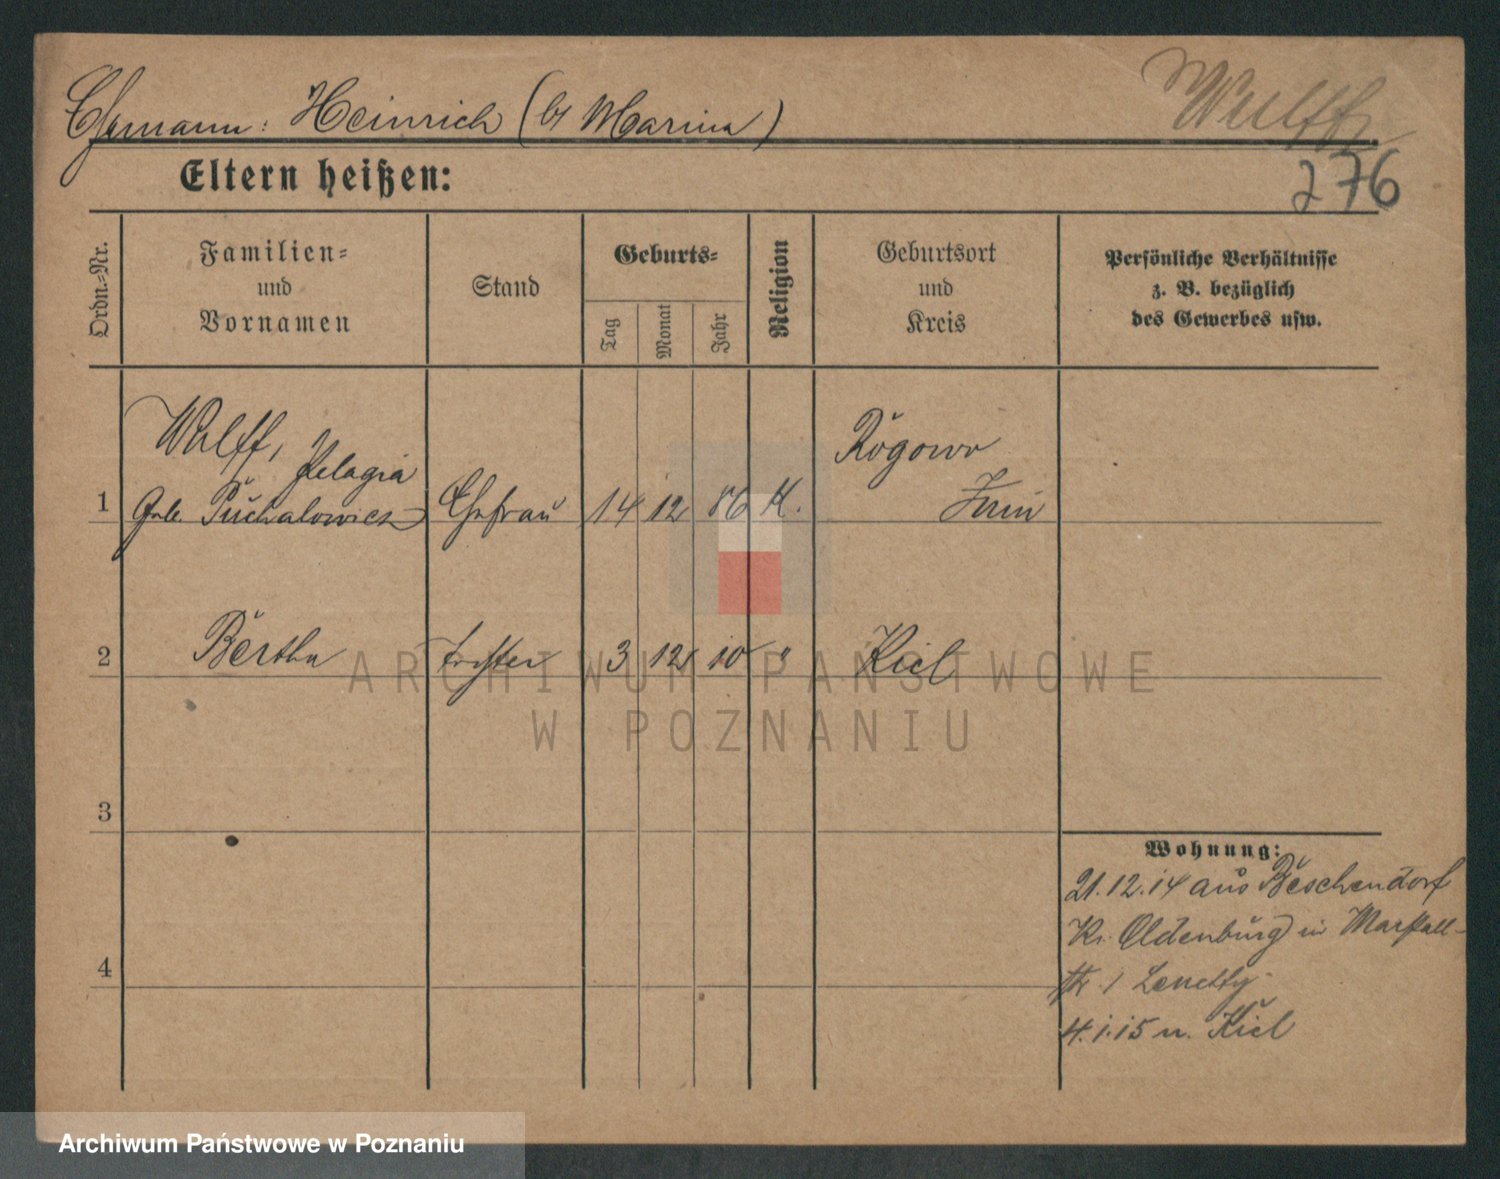 Ehemann: Heinrich (b/ Marine)
Wulff
276
Eltern heißen:
Ordn.-Nr.
Familien-
und
Vornamen
Stand
Geburts-
Tag
Monat
Jahr
Religion
Geburtsort
und
Kreis
Persönliche Verhältnisse
z. B. bezüglich
des Gewerbes usw.
1
Wulff, Pelagia
Geb. Puchalowicz
Ehefrau
14
12
86
K.
Rogowo
Znin
2
Bertha
Tochter
3
12
10
"
Kiel
3
4
Wohnung:
21.12.14 aus Beschendorf
Kr. Oldenburg in Marstall-
str. 1
4.1.15 n. Kiel
ARCHIWUM PAŃSTWOWE
W POZNANIU
Archiwum Państwowe w Poznaniu